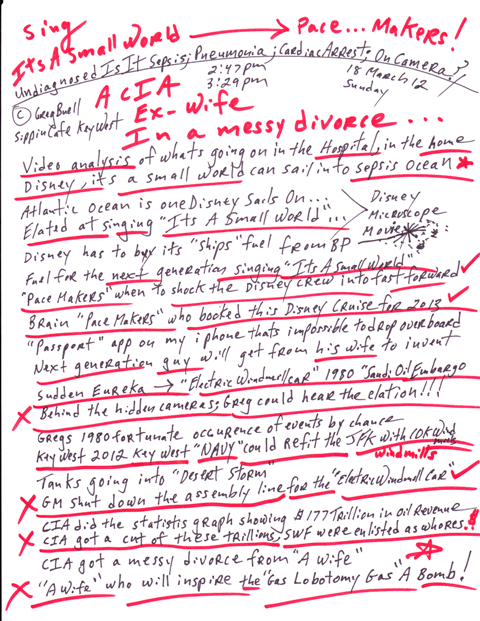 Sing
Its A Small World → Pace... Makers!
Undiagnosed Is It Sepsis; Pneumonia; Cardiac Arrest; On Camera!?
2:47pm
3:29pm
18 March 12
Sunday
© Greg Buell
Sippin Cafe Key West
A CIA
Ex-Wife
In a messy divorce ...
Video analysis of whats going on in the Hospital, in the home
Disney, it's a small world can sail into sepsis ocean
Atlantic Ocean is one Disney Sails On...
Elated at singing "Its A Small World"...
Disney
Microscope
Movie
Disney has to buy its "ships" fuel from BP
Fuel for the next generation singing "Its A Small World"
"Pace Makers" when to shock the Disney crew into fast forward
Brain "Pace Makers" who booked this Disney Cruise for 2013
"Passport" app on my iphone thats impossible to drop overboard
Next generation guy will get from his wife to invent
Sudden Eureka → "Electric Windmill Car" 1980 "Saudi Oil Embargo
Behind the hidden cameras; Greg could hear the elation!!!
Gregs 1980 fortunate occurence of events by chance
Key West 2012 Key West "NAVY" could refit the JFK with 10K Wind mills
windmills
Tanks going into "Desert Storm"
GM shut down the assembly line for the "Eletric Windmill Car"
CIA did the statistis graph showing $177 Trillion in Oil Revenue
CIA got a cut of these trillions, SWF were enlisted as whores.
CIA got a messy divorce from "A wife"
"A wife" who will inspire the "Gas Lobotomy Gas" A Bomb!